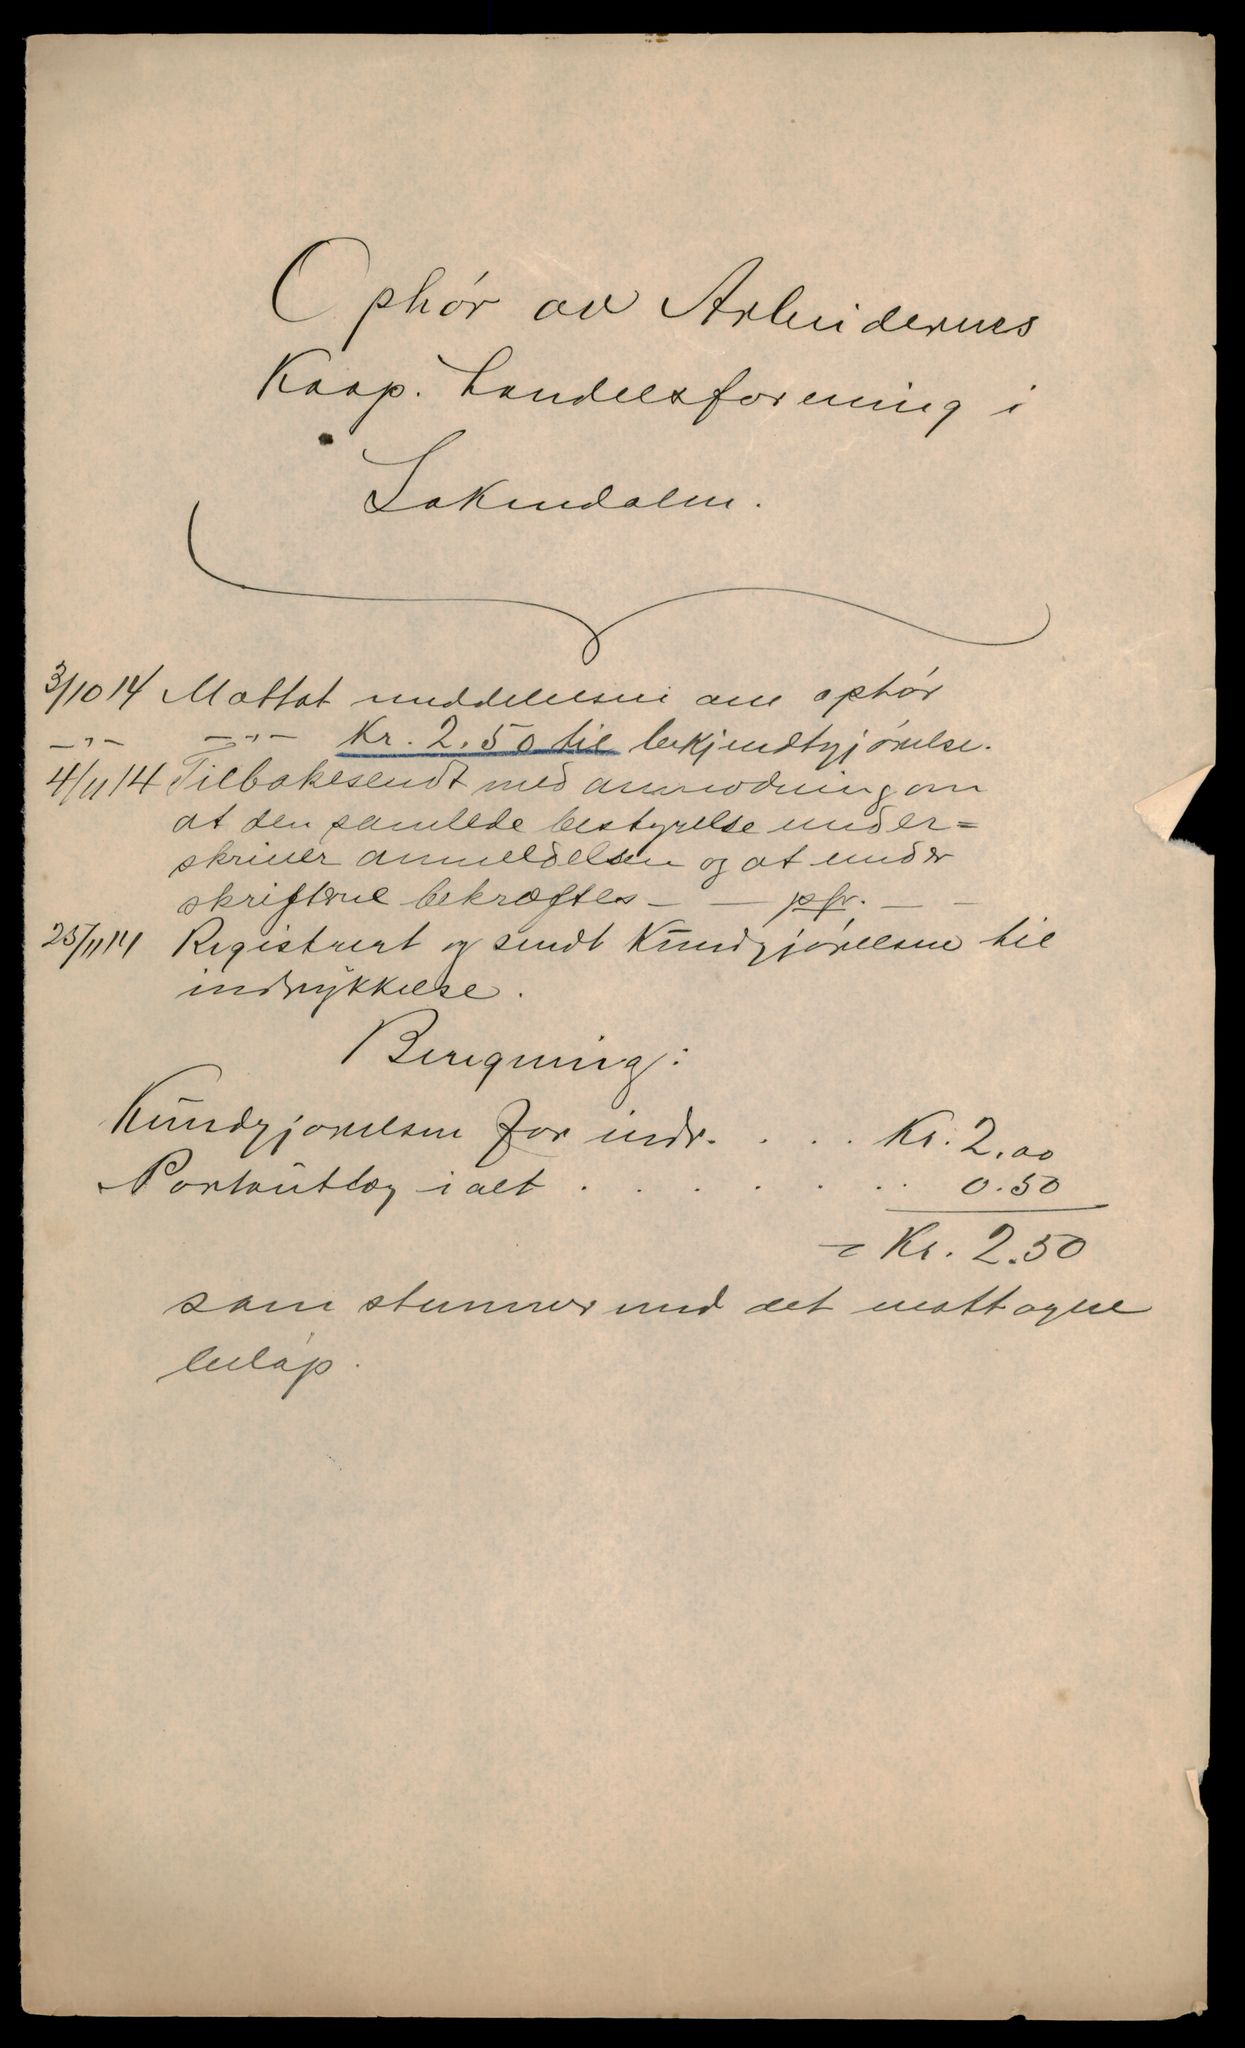 Ophør av Arbeidernes
Koop. Handelsforening i
Sokendalen.
3/10 14 Mottat meddelelsen om ophør
—„— —„— Kr. 2.50 til bekjendtgjørelse.
4/11 14 Tilbakesendt med anmodning om
at den samlede bestyrelse under=
skriver anmeldelsen og at under
skriftene bekræftes — — pfr. — —
25/11 14 Registrert og sendt Kundgjørelsen til
indrykkelse.
Beregning:
Kundgjørelsen for indr. . . . Kr. 2.00
Portoutlæg i alt . . . . . . . 0.50
= Kr. 2.50
som stemmer med det mottagne
beløp.